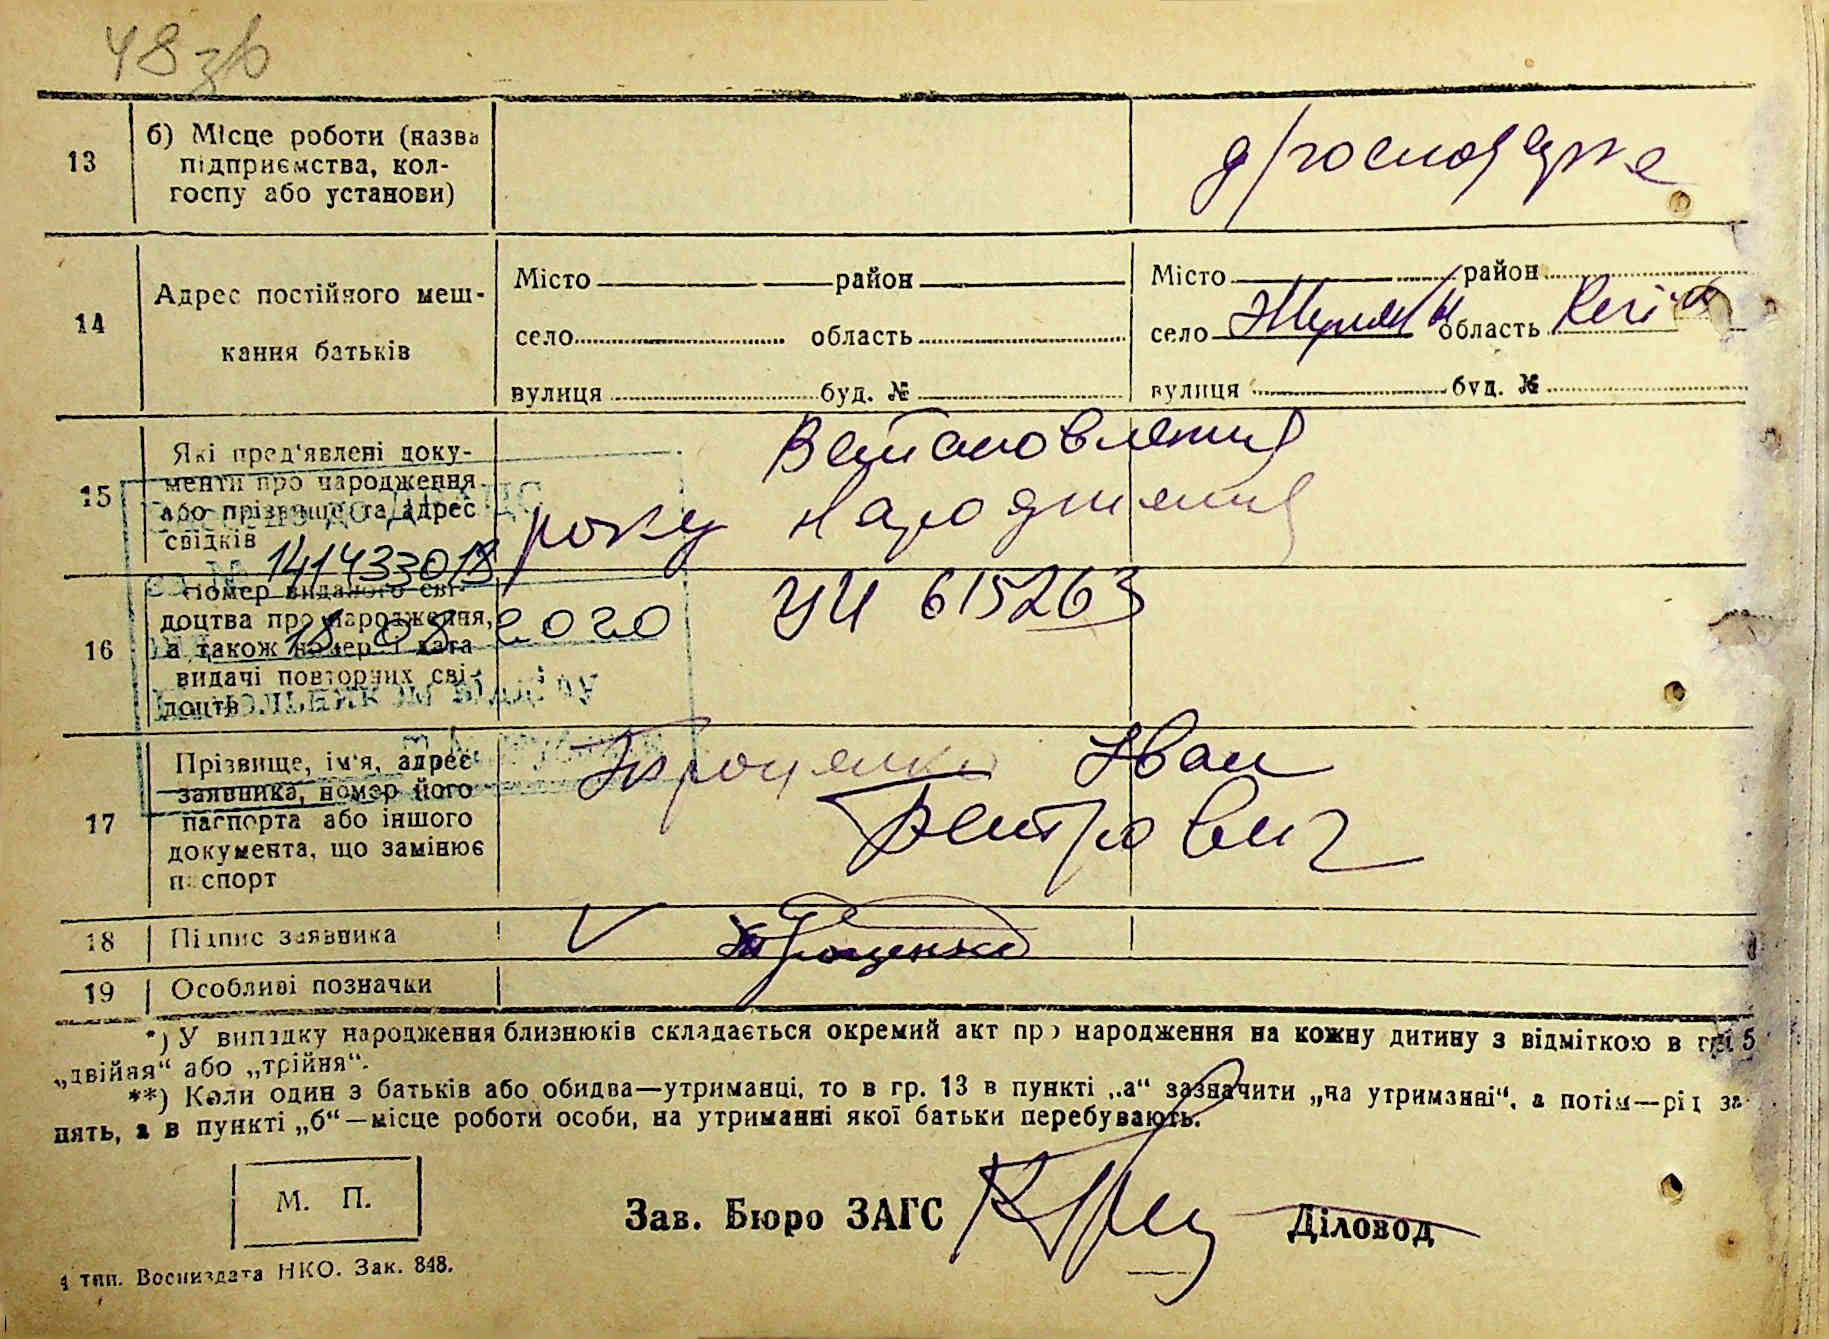 48 зв
13
б) Місце роботи (назва
підприємства, кол-
госпу або установи)
д/господарка
14
Адрес постійного меш-
кання батьків
Місто район
село область
вулиця буд. №
Місто район
село Жуляни область Київ
вулиця буд. №
15
Які пред'явлені доку-
менти про народження
або прізвище та адрес
свідків
Встановлення
року народження
141433018
16
Номер виданого сві-
доцтва про народження,
а також номер і дата
видачі повторних сві-
доцтв
18.08 2020
УИ 615263
17
Прізвище, ім'я, адрес
заявника, номер його
паспорта або іншого
документа, що замінює
паспорт
Троценко Іван
Петрович
18
Підпис заявника
V Троценко
19
Особливі позначки
*) У випадку народження близнюків складається окремий акт про народження на кожну дитину з відміткою в грі 5
„двійня“ або „трійня“.
**) Коли один з батьків або обидва—утриманці, то в гр. 13 в пункті „а“ зазначити „на утриманні“, а потім—рід за-
нять, а в пункті „б“—місце роботи особи, на утриманні якої батьки перебувають.
М. П.
Зав. Бюро ЗАГС
Діловод
4 тип. Воениздата НКО. Зак. 848.